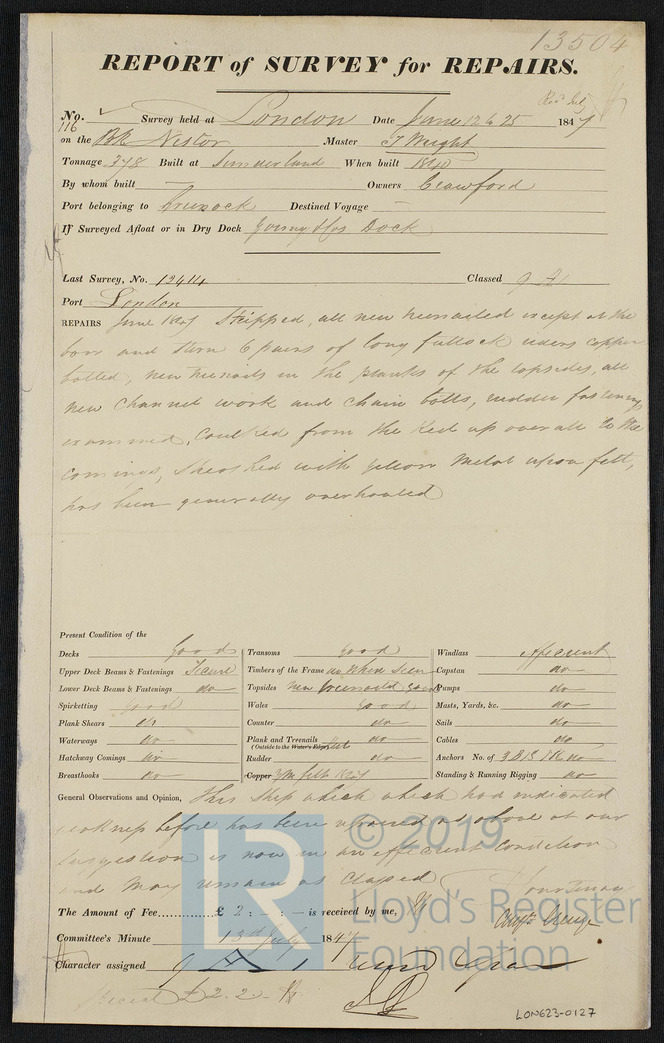 13504
REPORT of SURVEY for REPAIRS.
No. 116 Survey held at London Date June 12 & 25 1847
on the Bk Nestor Master J Wright
Tonnage 378 Built at Sunderland When built 1840
By whom built — Owners Crawford
Port belonging to Greenock Destined Voyage —
If Surveyed Afloat or in Dry Dock Dock
Last Survey, No. 13414 Classed 9 A1
Port London
REPAIRS June 1847 Stripped, all new treenailed except at the
bow and stern 6 pairs of long futtock riders copper
bolted, new treenails in the planks of the topsides, all
new channel work and chain bolts, rudder fastenings
examined, Caulked from the Keel up over all to the
comings, Sheathed with yellow metal upon felt,
has been generally overhauled
Present Condition of the
Decks good
Upper Deck Beams & Fastenings Secure
Lower Deck Beams & Fastenings do
Spirketting good
Plank Shears do
Waterways do
Hatchway Comings do
Breasthooks do
Transoms good
Timbers of the Frame as when seen
Topsides new treenailed good
Wales good
Counter do
Plank and Treenails do
(Outside to the Water's Edge)
Rudder do
Copper YM felt 1847
Windlass efficient
Capstan do
Pumps do
Masts, Yards, &c. do
Sails do
Cables do
Anchors No. of 3 B 1 S 1 K do
Standing & Running Rigging do
General Observations and Opinion, This Ship which which had indicated
weakness before has been repaired as above at our
suggestion is now in an efficient Condition
and may remain as Classed
The Amount of Fee............£ 2 : - : - is received by me,
Committee's Minute 13th July 1847
Character assigned 9 A 1
£2.2.-
LON623-0127
© 2019
LR
Lloyd's Register
Foundation